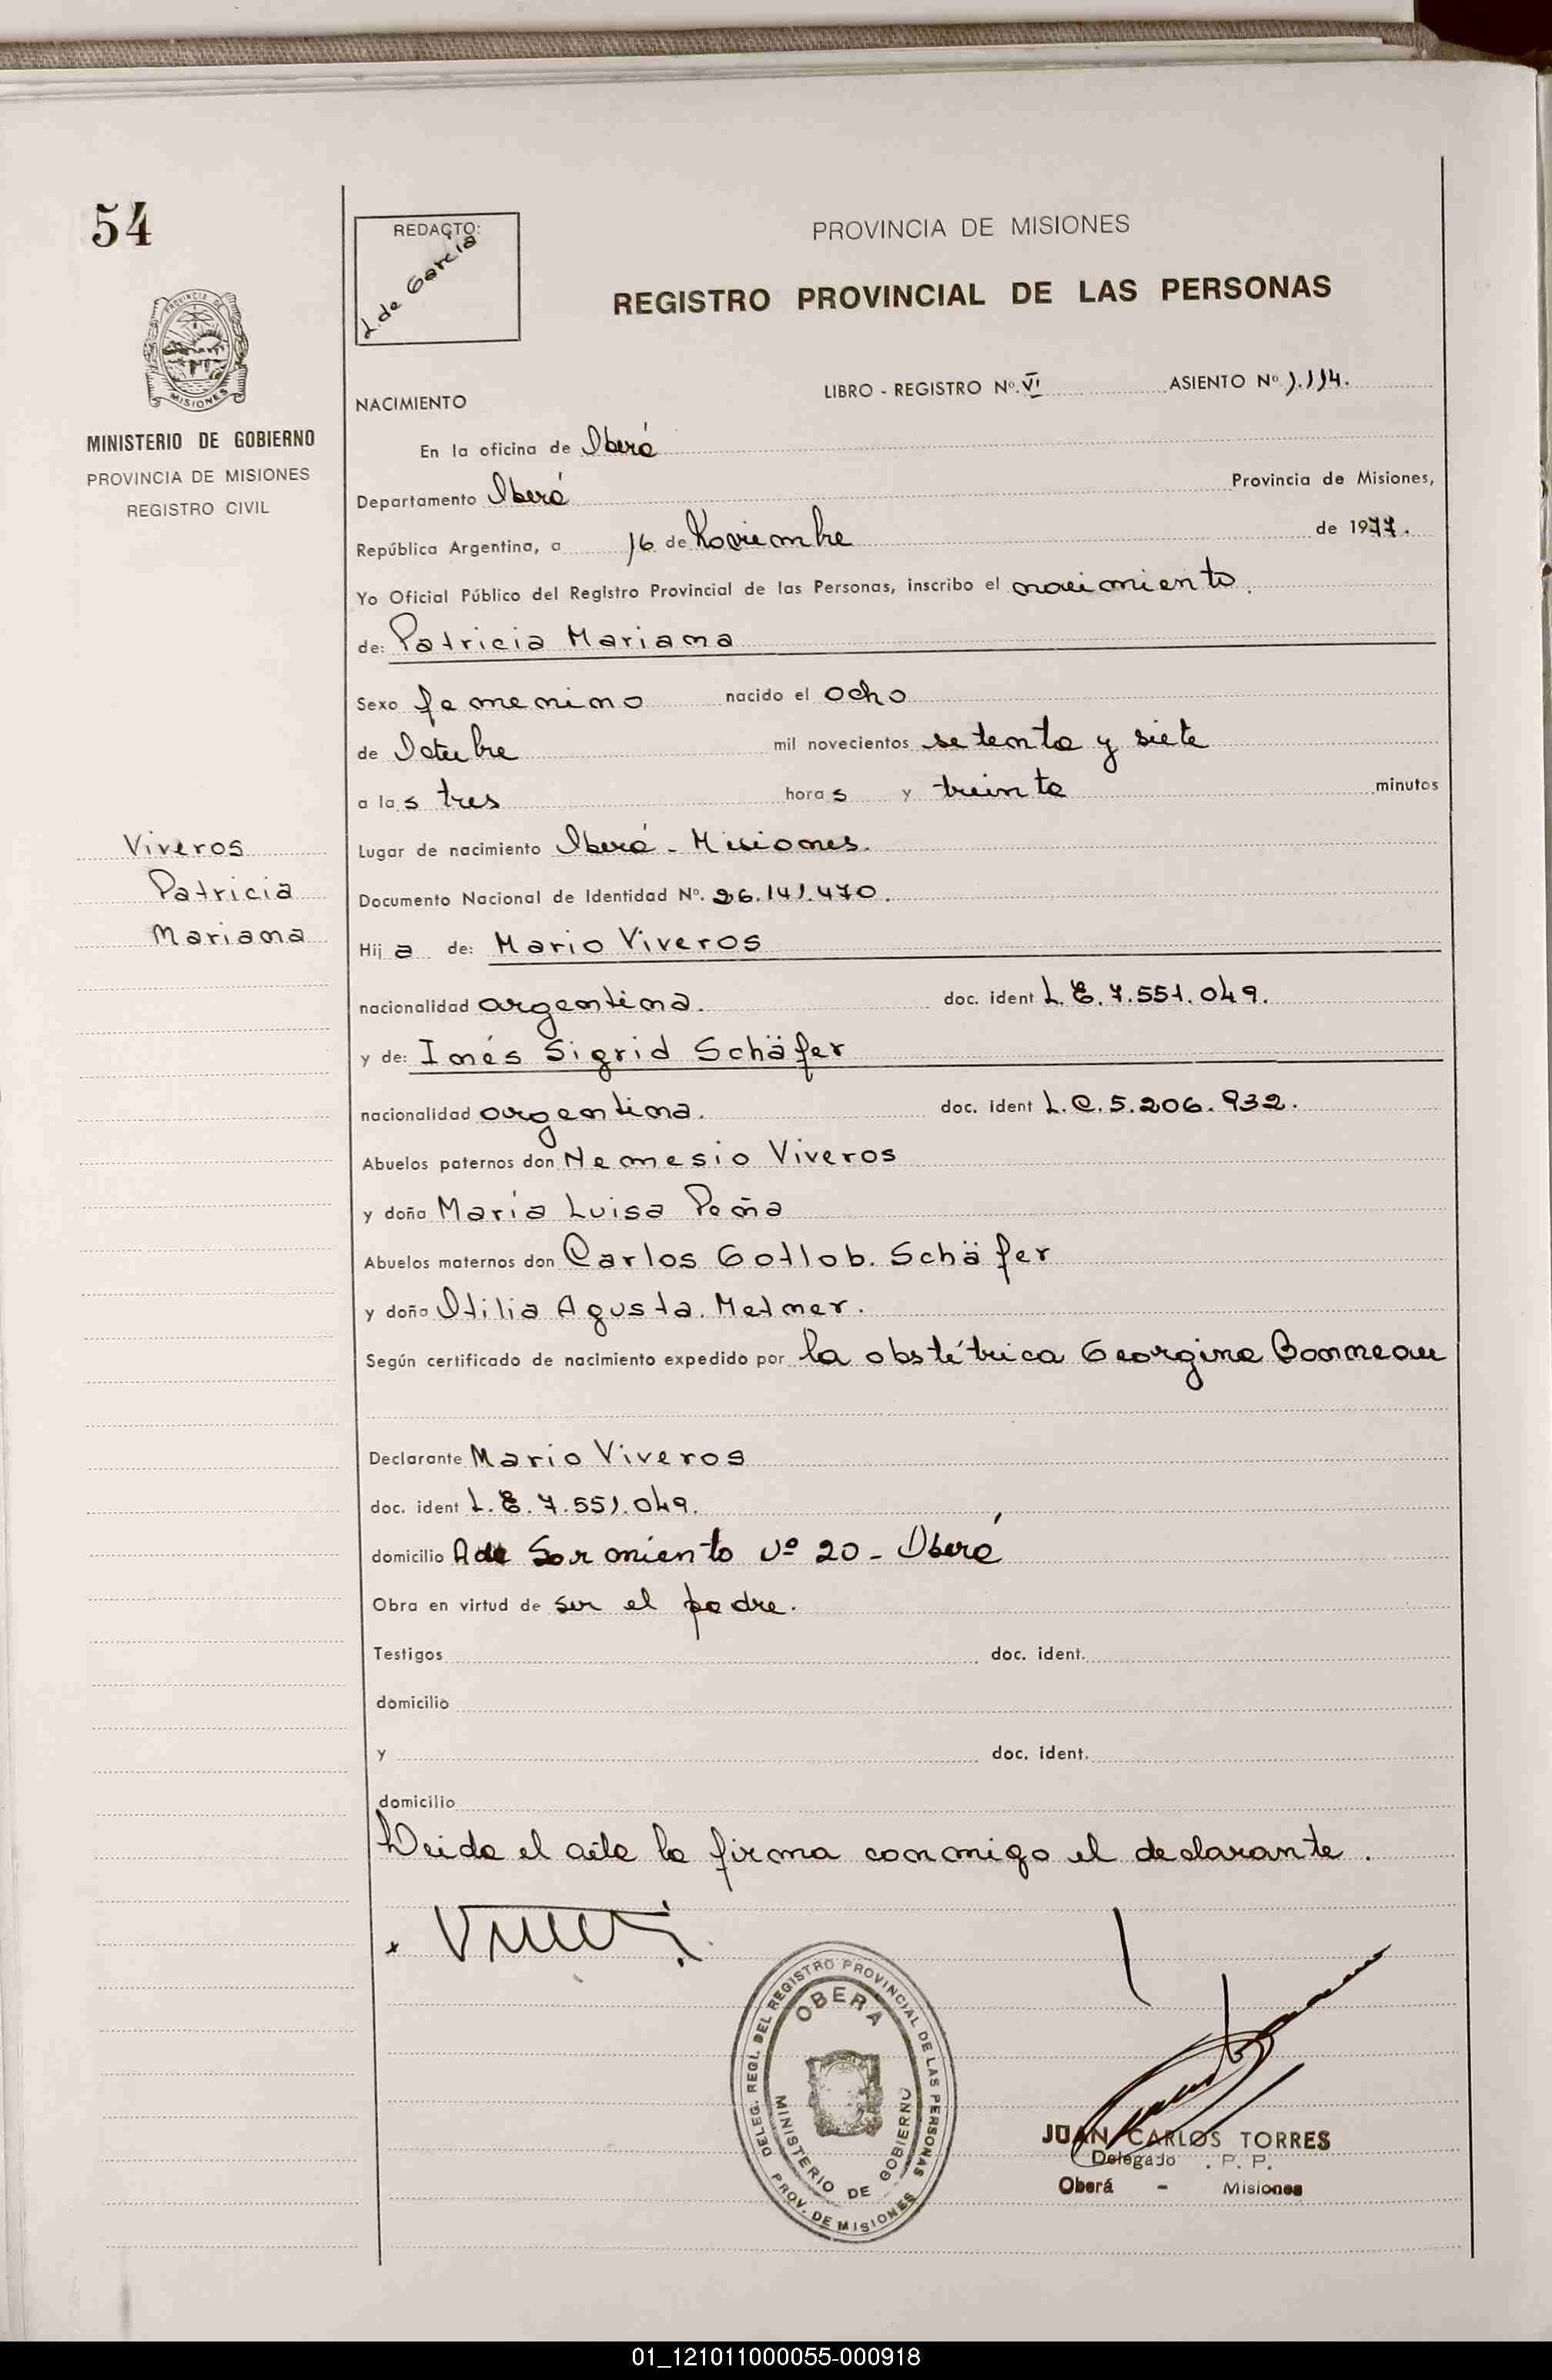 54
PROVINCIA DE
MISIONES
MINISTERIO DE GOBIERNO
PROVINCIA DE MISIONES
REGISTRO CIVIL
REDACTO:
L. de Garcia
PROVINCIA DE MISIONES
REGISTRO PROVINCIAL DE LAS PERSONAS
LIBRO - REGISTRO Nº. VI ASIENTO Nº 1.114.
NACIMIENTO
En la oficina de Oberá
Departamento Oberá Provincia de Misiones,
República Argentina, a 16 de Noviembre de 1977.
Yo Oficial Público del Registro Provincial de las Personas, inscribo el nacimiento.
de: Patricia Mariana
Sexo femenino nacido el ocho
de Octubre mil novecientos setenta y siete
a las tres horas y treinta minutos
Lugar de nacimiento Oberá - Misiones.
Documento Nacional de Identidad Nº. 26.141.470.
Viveros
Patricia
Mariana
Hija de: Mario Viveros
nacionalidad argentina. doc. ident L.E. 7.551.049.
y de: Inés Sigrid Schäfer
nacionalidad argentina. doc. ident L.C. 5.206.932.
Abuelos paternos don Nemesio Viveros
y doña María Luisa Peña
Abuelos maternos don Carlos Gotlob. Schäfer
y doña Otilia Agusta. Metner.
Según certificado de nacimiento expedido por la obstétrica Georgina Bonneau
Declarante Mario Viveros
doc. ident L.E. 7.551.049.
domicilio Ade Sarmiento Nº 20 - Oberá
Obra en virtud de ser el padre.
Testigos doc. ident.
domicilio
y doc. ident.
domicilio
Leida el acta la firma conmigo el declarante.
DELEG. REGI. DEL REGISTRO PROVINCIAL DE LAS PERSONAS
OBERA
MINISTERIO DE GOBIERNO
PROV. DE MISIONES
JUAN CARLOS TORRES
Delegado . P. P.
Oberá - Misiones
01_121011000055-000918